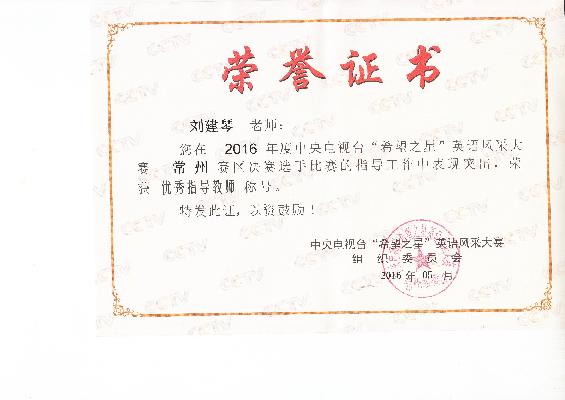 荣誉证书
刘建琴 老师：
您在 2016 年度中央电视台“希望之星”英语风采大
赛 常州 赛区决赛选手比赛的指导工作中表现突出，荣
获 优秀指导教师 称号。
特发此证，以资鼓励！
中央电视台“希望之星”英语风采大赛
组织委员会
2016 年 05 月
CCTV